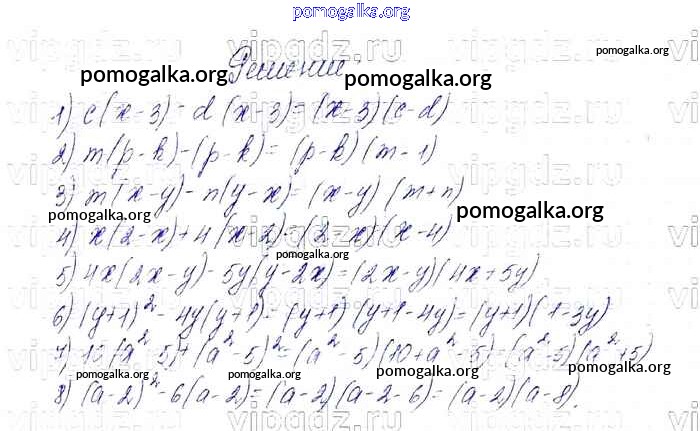 pomogalka.org
Решение.
pomogalka.org
pomogalka.org
pomogalka.org
1) c(x-3)-d(x-3)=(x-3)(c-d)
2) m(p-k)-(p-k)=(p-k)(m-1)
3) m(x-y)-n(y-x)=(x-y)(m+n)
pomogalka.org
pomogalka.org
4) x(2-x)+4(x-2)=(2-x)(x-4)
pomogalka.org
5) 4x(2x-y)-5y(y-2x)=(2x-y)(4x+5y)
6) (y+1)²-4y(y+1)=(y+1)(y+1-4y)=(y+1)(1-3y)
7) 10(a²-5)+(a²-5)²=(a²-5)(10+a²-5)=(a²-5)(a²+5)
pomogalka.org
pomogalka.org
pomogalka.org
pomogalka.org
8) (a-2)²-6(a-2)=(a-2)(a-2-6)=(a-2)(a-8).
vipgdz.ru
vipgdz.ru
vipgdz.ru
vipgdz.ru
vipgdz.ru
vipgdz.ru